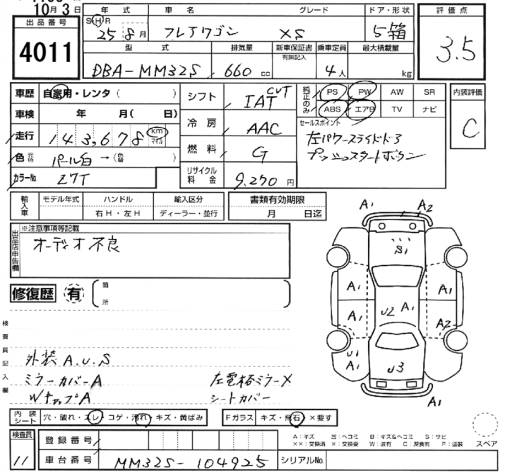 10月3日
出品番号
4011
年式 車名 グレード ドア・形状
SH R 25年8月 フレアワゴン XS 5箱
評価点
3.5
型式 排気量 新車保証書 有無記入 乗車定員 最大積載量
DBA-MM32S 660cc 4人 kg
車歴 自家用・レンタ( )
車検 年 月( 日)
走行 143,678 km マイル
色 パール白→(色替 )
カラーNo 27T
シフト CVT IAT
冷房 AAC
燃料 G
リサイクル料金 9,250円
純正のみ PS PW AW SR
ABS エアB TV ナビ
セールスポイント
左パワースライドドア
プッシュスタートボタン
内装評価
C
輸入車 モデル年式 ハンドル 輸入区分
右H・左H ディーラー・並行
書類有効期限
月 日迄
※注意事項等記載
出品店申告欄
オーディオ不良
修復歴 有 箇所
検査員記入欄
外装A.U.S
ミラーカバーA
WキャップA
左電格ミラーX
シートカバー
A1 A2
S1
A1 A1
A1 A1 U2 A2
U1 A1
U3
内装シート 穴・破れ・スレ コゲ・汚れ・キズ・黄ばみ
Fガラス キズ・飛石 X要す
検査員
11
登録番号
車台番号 MM32S-104925 シリアルNo.
スペア